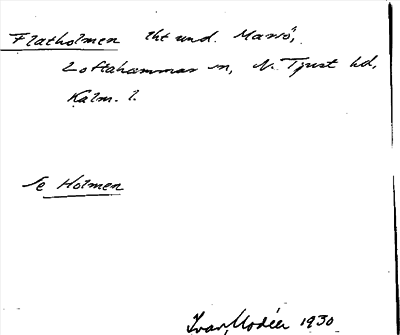 Flatholmen tht und. Massö,
Loftahammar sn, N. Tjust hd,
Kalm. l.
Se Holmen
Ivar Modéer 1930